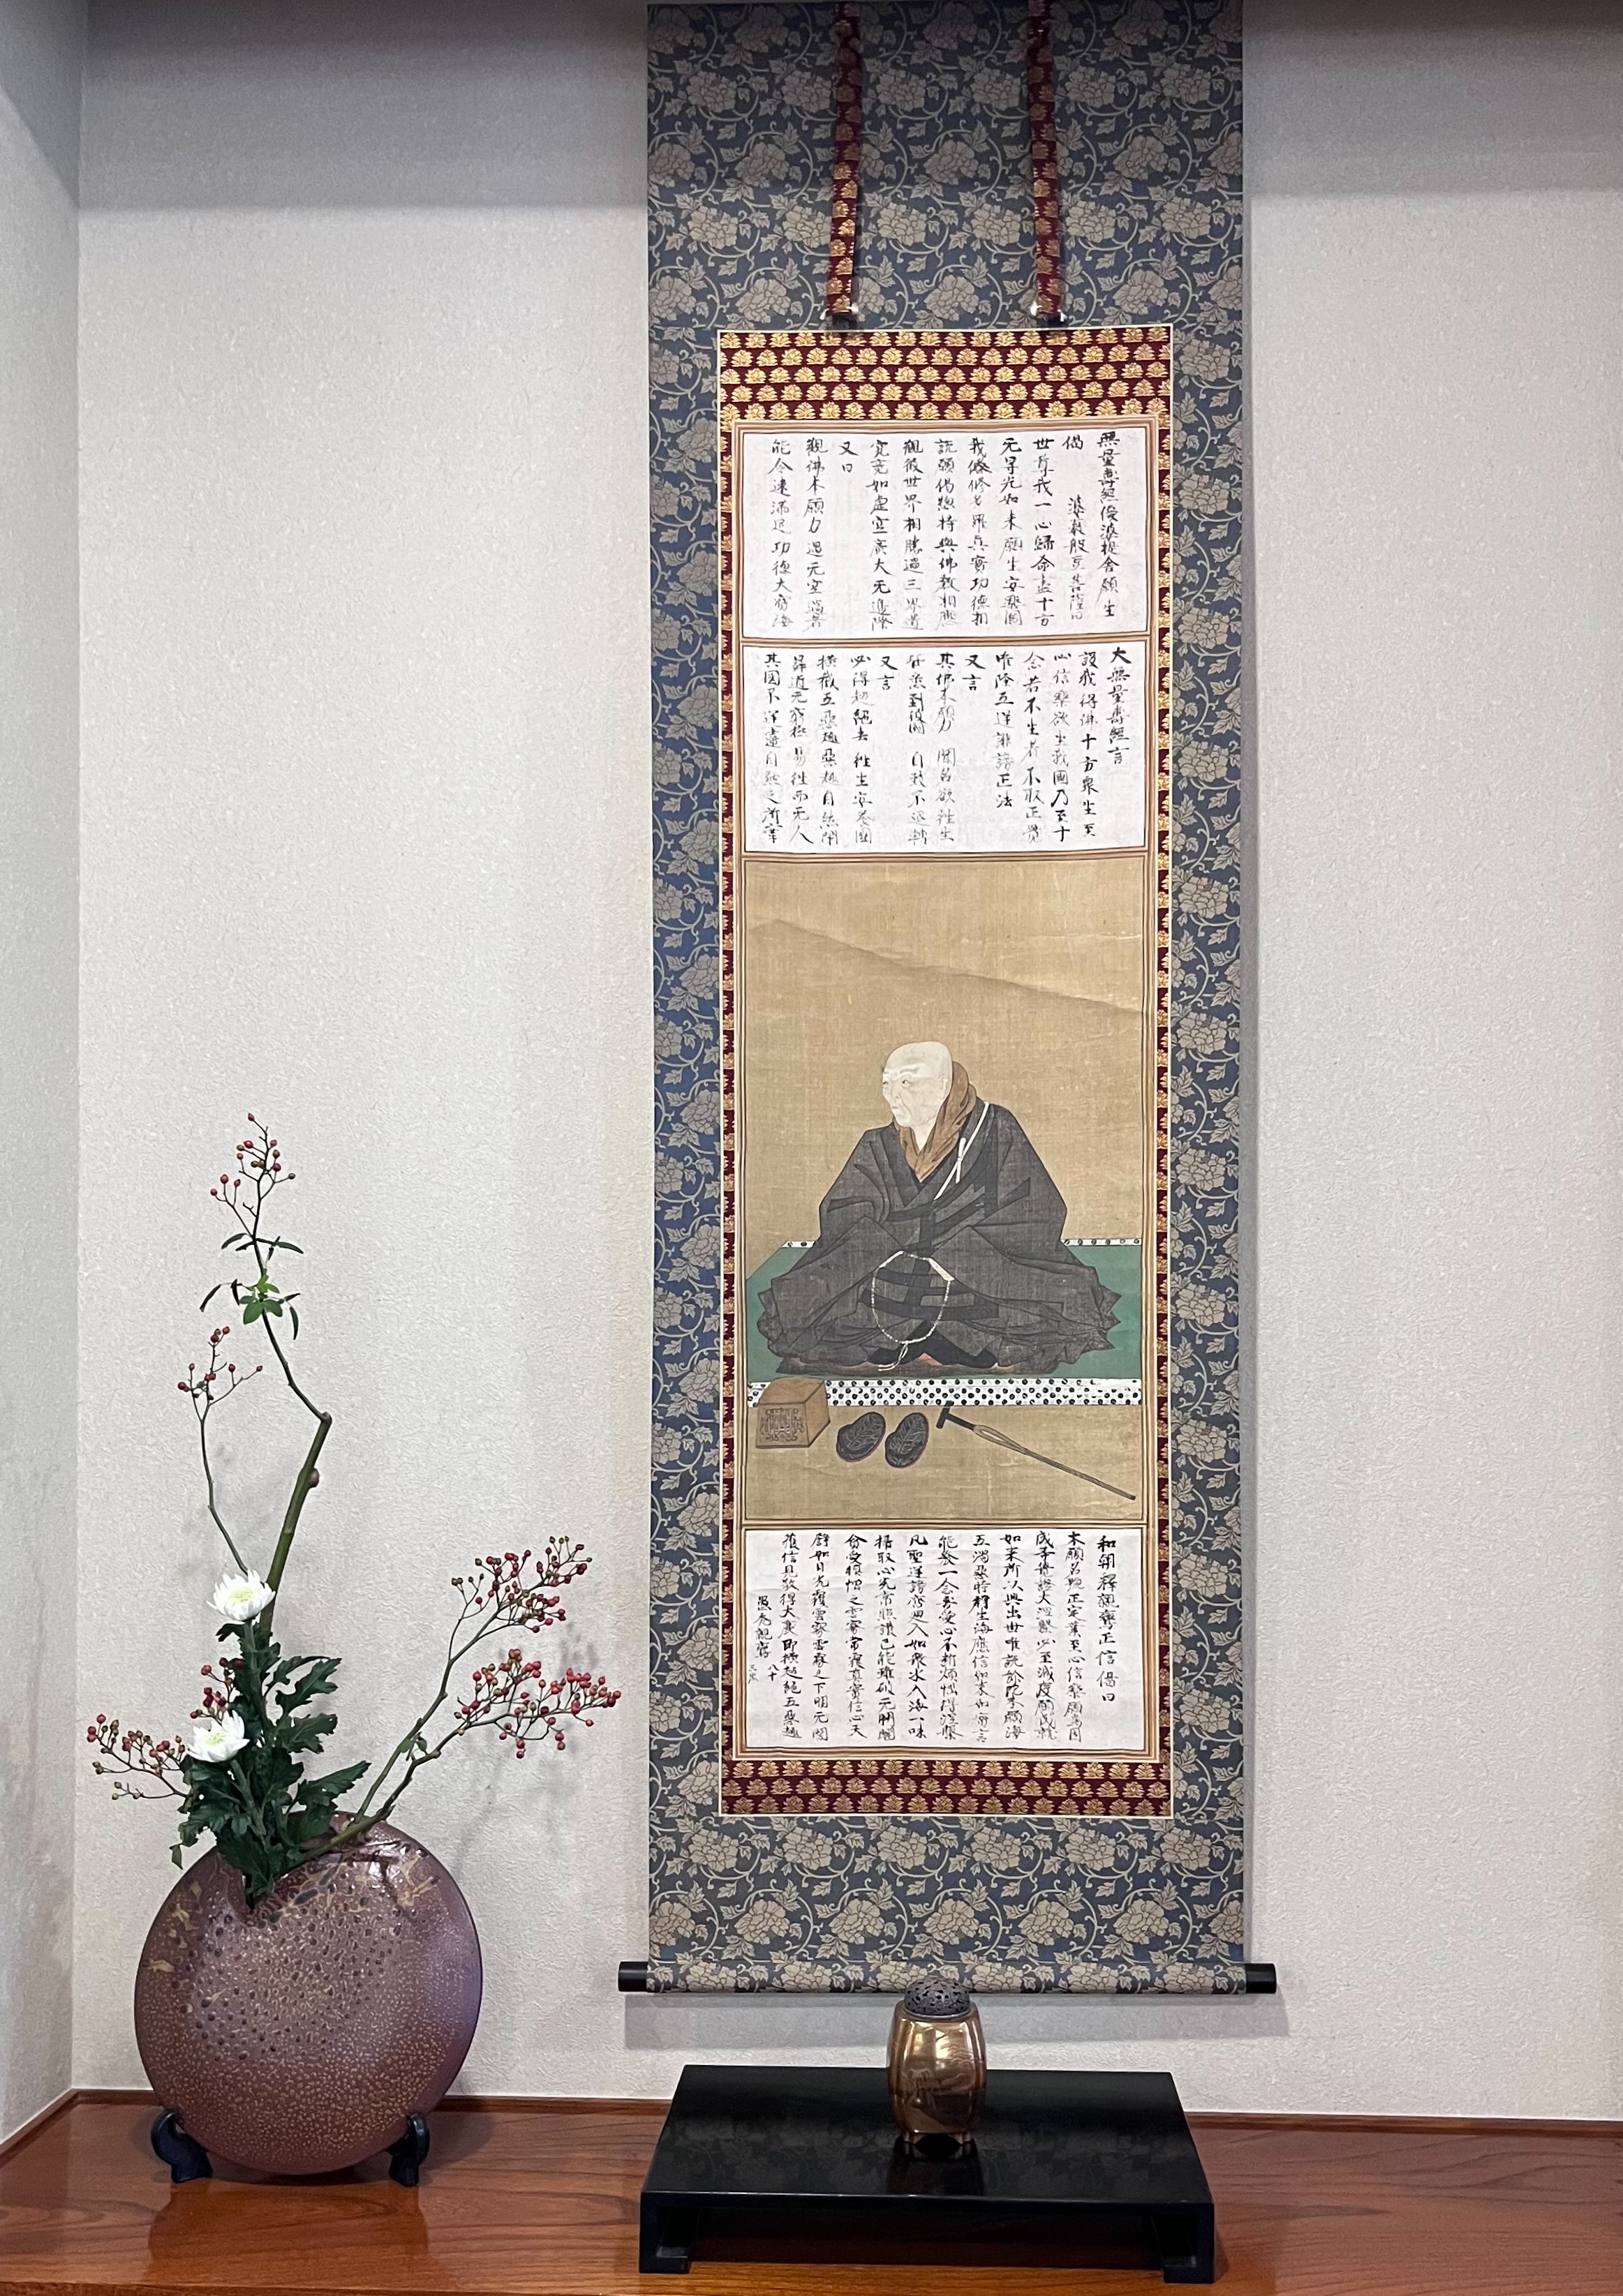 無量壽經優婆提舍願生
偈　婆薮般豆菩薩曰
世尊我一心歸命盡十方
无㝵光如来願生安樂國
我依修多羅真實功德相
說願偈惣持與佛教相應
觀彼世界相勝過三界道
究竟如虚空廣大无邊際
又曰
觀佛本願力遇无空過者
能令速滿足功德大寶海
大無量壽經言
設我得佛十方衆生至
心信樂欲生我國乃至十
念若不生者不取正覺
唯除五逆誹謗正法
又言
其佛本願力 聞名欲往生
皆悉到彼國 自致不退轉
又言
必得超絶去 往生安養國
横截五惡趣惡趣自然閇
昇道无窮極 易往而无人
其國不逆違自然之所牽
和朝釋親鸞正信偈曰
本願名号正定業至心信樂願為因
成等覺證大涅槃必至滅度願成就
如来所以興出世唯説弥陀本願海
五濁惡時群生海應信如来如實言
能發一念喜愛心不断煩惱得涅槃
凡聖逆謗齊迴入如衆水入海一味
攝取心光常照護已能雖破无明闇
貪愛瞋憎之雲霧常覆真實信心天
譬如日光覆雲霧雲霧之下明无闇
獲信見敬得大慶即横超絶五惡趣
愚禿親鸞
八十三歳